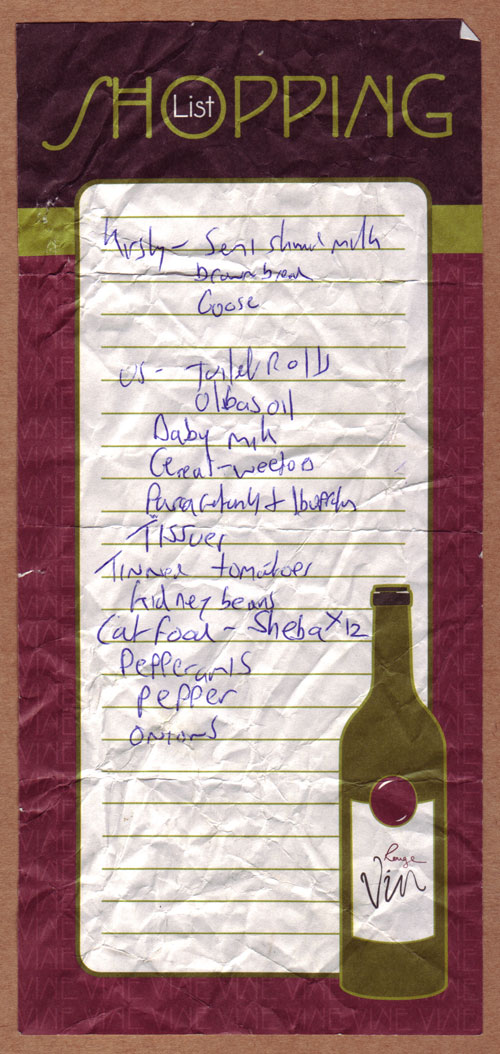 SHOPPING
List
Kirsty - Semi skimmed milk
brown bread
Goose
US - Toilet Rolls
Olbas oil
Baby milk
Cereal - weetos
Paracetamol + Ibuprofen
Tissues
Tinned tomatoes
kidney beans
Cat food - Sheba x12
Pepperamis
Pepper
onions
Rouge
Vin